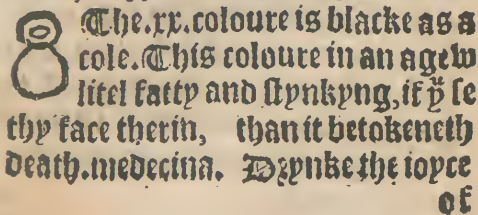 The.xx.coloure is blacke as a
cole.This coloure in an agew
litel fatty and stynkyng,if yͧ se
thy face therin, than it betokeneth
death.medecina. Drynke the ioyce
of